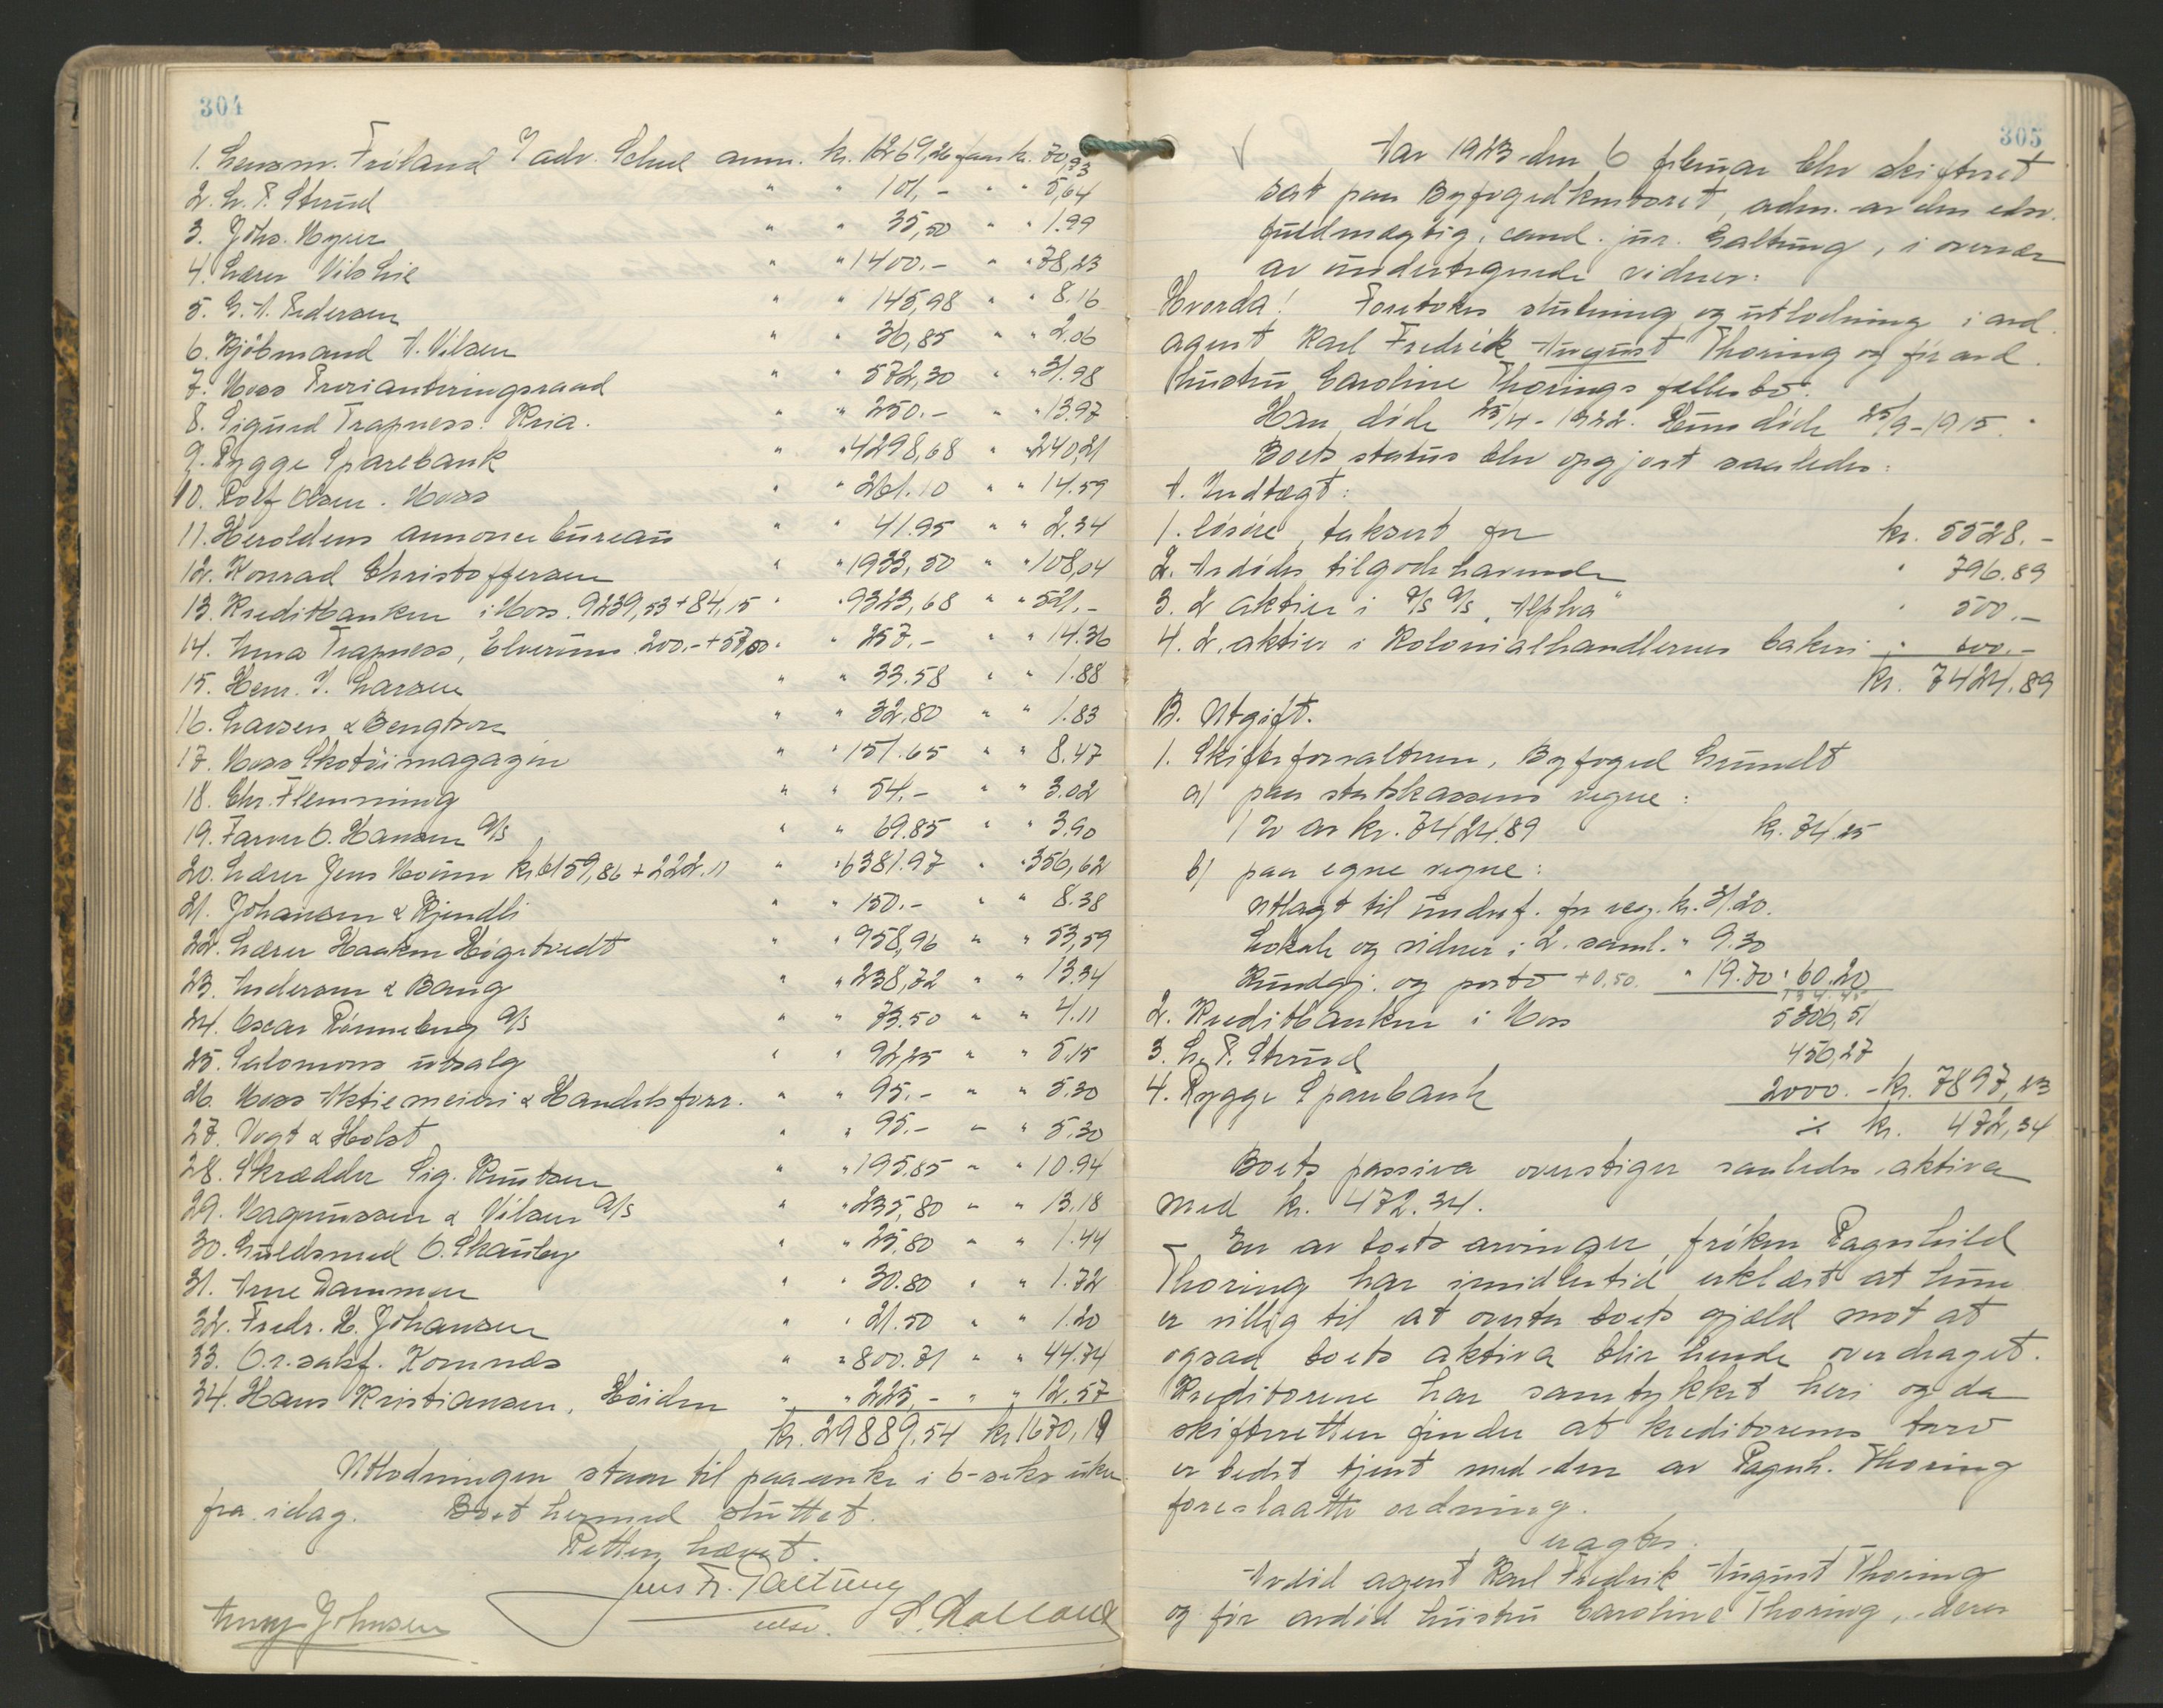 304
1. Lensm. Fröland v/ adv. Schee anm. kr. 1269,26 faar kr. 70,93
2. L. P. Strüd " " 101,- " " 5,64
3. Johs. Meyer " " 35,50 " " 1.99
4. Lærer Nils Lie " " 1400.- " " 78,23
5. G. A. Pedersen " " 145,98 " " 8.16
6. Kjöbmand A. Nilsen " " 36,85 " " 2.06
7. Moss Provianteringsraad " " 572,30 " " 31.98
8. Sigurd Trapness. Kria. " " 250.- " " 13.97
9. Rygge Sparebank " " 4298,68 " " 240,21
10. Rolf Olsen. Moss " " 261.10 " " 14.59
11. Heroldens annonce bureau " " 41.95 " " 2.34
12. Konrad Christoffersen " " 1933,50 " " 108,04
13. Kreditbanken i Moss. 9239,53 + 84,15 " " 9323,68 " " 521.-
14. Anna Trapness, Elverum 200.- + 57,00 " " 257.- " " 14.36
15. Henr. J. Larsen " " 33.58 " " 1.88
16. Larsen & Bengtson " " 32,80 " " 1.83
17. Moss Skotöimagazin " " 151.65 " " 8.47
18. Chr. Flemming " " 54.- " " 3.02
19. Farver O. Hansen A/S " " 69.85 " " 3.90
20. Lærer Jens Moum kr. 6159,86 + 222.11 " " 6381.97 " " 356,62
21. Johansen & Kjendli " " 150.- " " 8.38
22. Lærer Haakon Högetvedt " " 958,96 " " 53,59
23. Andersen & Bang " " 238,72 " " 13.34
24. Oscar Rönneberg A/S " " 73.50 " " 4.11
25. Salomons utsalg " " 92,25 " " 5.15
26. Moss Aktiemeieri & Handelsforr. " " 95.- " " 5.30
27. Vogt & Holst " " 95.- " " 5.30
28. Skrædder Sig. Knutsen " " 195.85 " " 10.94
29. Magnussen & Nilsen A/S " " 235,80 " " 13.18
30. Guldsmed O. Skauby " " 25,80 " " 1.44
31. Arne Dammen " " 30.80 " " 1.72
32. Fredr. H. Johansen " " 21.50 " " 1.20
33. O.r.sakf. Kornnæs " " 800.71 " " 44.74
34. Hans Kristiansen, Höiden " " 225,- " " 12.57
kr. 29889.54 kr 1670,19
Utlodningen staar til paaanke i 6-seks uker
fra idag. Boet hermed sluttet.
Retten hævet.
Jens Fr. Galtung
edsv.
Anny Johnsen
305
Aar 1923 den 6 februar blev skifteret
sat paa Byfogedkontoret, adm. av den edsv.
fuldmægtig, cand. jur. Galtung, i overvær
av undertegnede vidner:
Hvorda! Foretokes slutning og utlodning i avd.
agent Karl Fredrik August Thoring ogför avd.
hustru Caroline Thorings fællesbo.
Han döde 25/4-1922. Hun döde 25/9-1915.
Boets status blev opgjort saaledes:
A. Indtægt:
1. lösöre, taksert for kr. 5528.-
2. Avdödes tilgodehavende " 796.89
3. 2 aktier i A/S A/S "Alpha" " 500.-
4. 2 aktier i Kolonialhandlernes bakeri " 600.-
kr. 7424.89
B. Utgift.
1. Skifteforvalteren, Byfoged Grundt
a) paa statskassens vegne:
1 % av kr. 7424.89 kr. 74,25
b) paa egne vegne:
Utlagt til underf. for reg. kr. 31.20.
Lokale og vidner i 2. saml. " 9.30
Kundgj. og porto + 0,50. " 19.70 " 60.20
134.45
2. Kreditbanken i Moss 5306,51
3. L. P. Strüd 456,27
4. Rygge Sparebank 2000.- kr. 7897,23
÷ kr. 472,34
Boets passiva overstiger saaledes aktiva
med kr. 472.34.
En av boets arvinger, fröken Ragnhild
Thoring har imidlertid erklært at hun
er villig til at overta boets gjæld mot at
ogsaa boets aktiva blir hende overdraget.
Kreditorene har samtykket heri og da
skifteretten finder at kreditorenes tarv
er bedst tjent med den av Ragnh. Thoring
foreslaatte ordning.
eragtes.
Avdöd agent Karl Fredrik August Thoring
og för avdöd hustru Caroline Thoring, deres